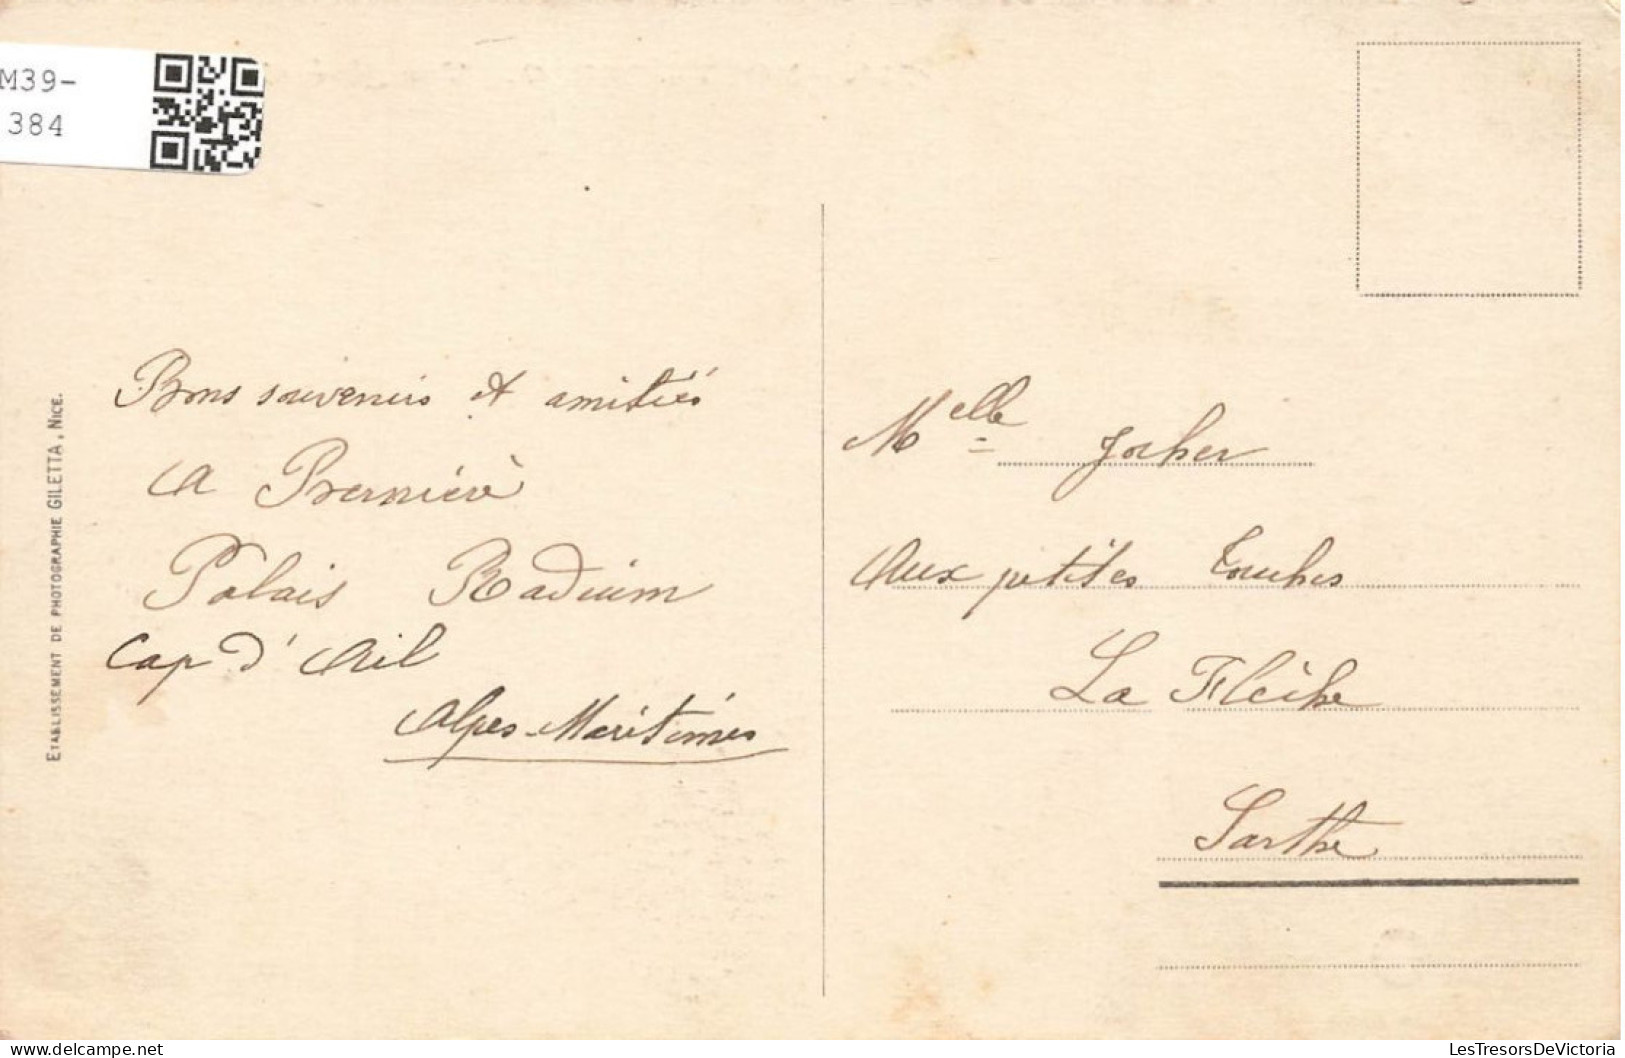 M39-
384
ETABLISSEMENT DE PHOTOGRAPHIE GILETTA, NICE.
Bons souvenirs et amitiés
A
Palais Radium
Cap d'Ail
Alpes-Maritimes
Melle Jocher
Aux petites Touches
La Flèche
Sarthe
LesTresorsDeVictoria
https://www.delcampe.net